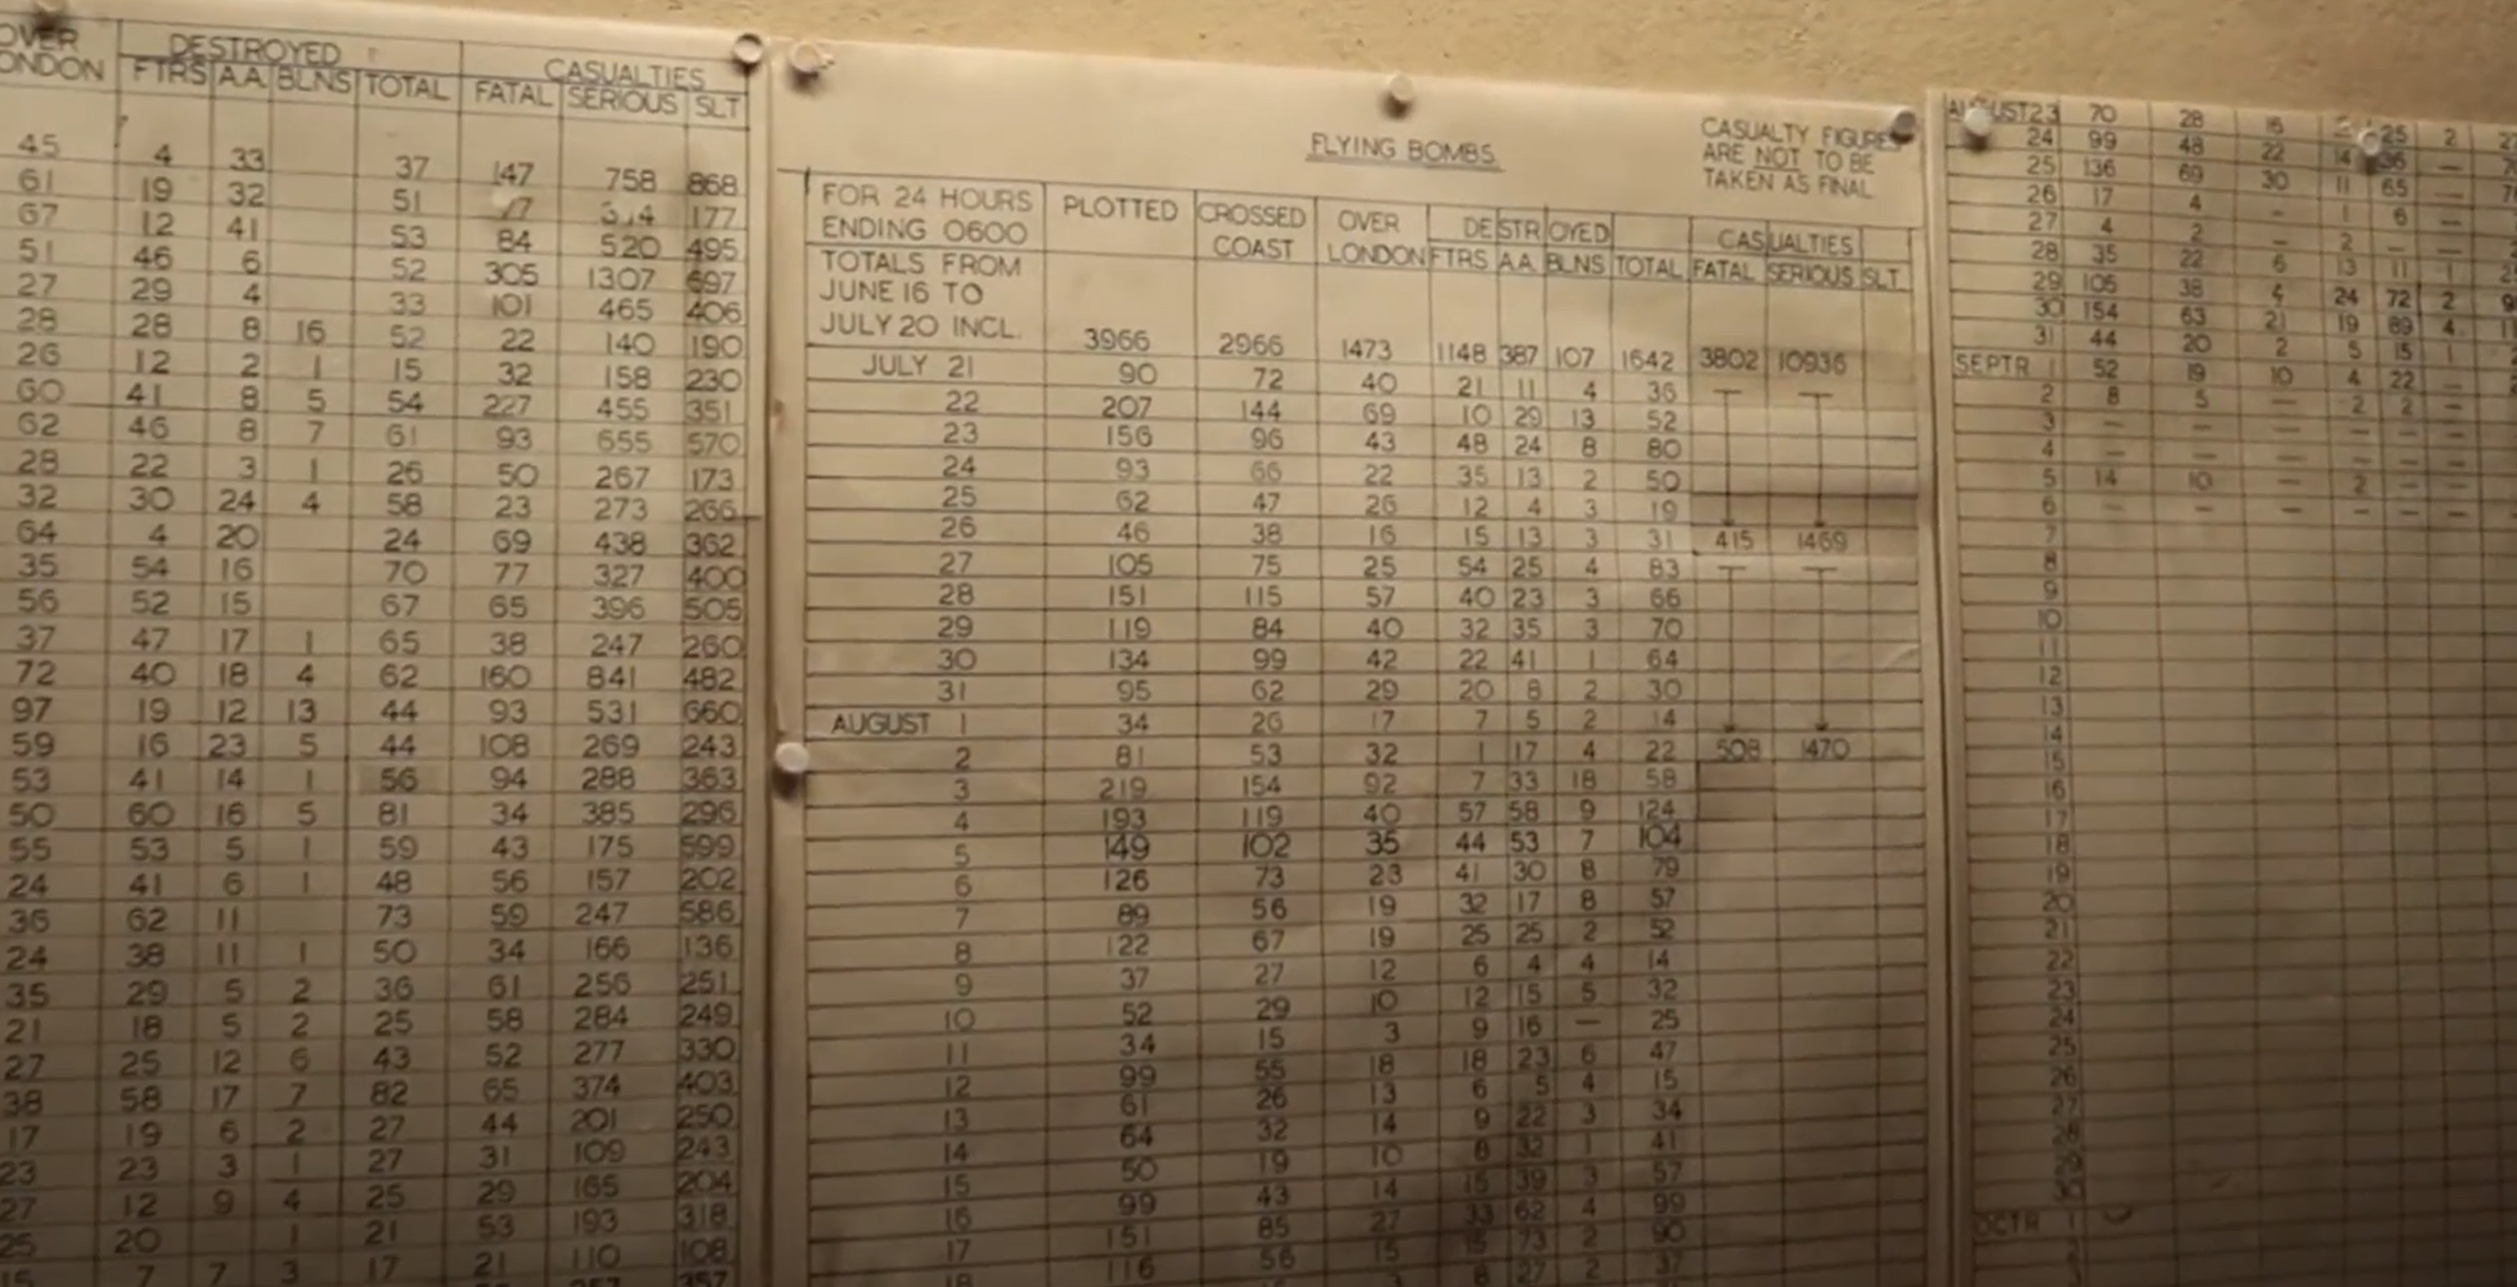 OVER LONDON DESTROYED CASUALTIES
FTRS A.A. BLNS TOTAL FATAL SERIOUS SLT
45 4 33 37 147 758 868
61 19 32 51 177
67 12 41 53 84 520 495
51 46 6 52 305 1307 697
27 29 4 33 101 465 406
28 28 8 16 52 22 140 190
26 12 2 1 15 32 158 230
60 41 8 5 54 227 455 351
62 46 8 7 61 93 655 570
28 22 3 1 26 50 267 173
32 30 24 4 58 23 273 266
64 4 20 24 69 438 362
35 54 16 70 77 327 400
56 52 15 67 65 396 505
37 47 17 1 65 38 247 260
72 40 18 4 62 160 841 482
97 19 12 13 44 93 531 660
59 16 23 5 44 108 269 243
53 41 14 1 56 94 288 363
50 60 16 5 81 34 385 296
55 53 5 1 59 43 175 599
24 41 6 1 48 56 157 202
36 62 11 73 59 247 586
24 38 11 1 50 34 166 136
35 29 5 2 36 61 256 251
21 18 5 2 25 58 284 249
27 25 12 6 43 52 277 330
38 58 17 7 82 65 374 403
17 19 6 2 27 44 201 250
23 23 3 1 27 31 109 243
27 12 9 4 25 29 165 204
25 20 1 21 53 193 318
15 7 7 3 17 21 110 108
357
FLYING BOMBS
CASUALTY FIGURES
ARE NOT TO BE
TAKEN AS FINAL
FOR 24 HOURS ENDING 0600 PLOTTED CROSSED COAST OVER LONDON DESTROYED CASUALTIES
FTRS A.A. BLNS TOTAL FATAL SERIOUS SLT
TOTALS FROM
JUNE 16 TO
JULY 20 INCL. 3966 2966 1473 1148 387 107 1642 3802 10936
JULY 21 90 72 40 21 11 4 36
22 207 144 69 10 29 13 52
23 156 96 43 48 24 8 80
24 93 66 22 35 13 2 50
25 62 47 26 12 4 3 19
26 46 38 16 15 13 3 31 415 1469
27 105 75 25 54 25 4 83
28 151 115 57 40 23 3 66
29 119 84 40 32 35 3 70
30 134 99 42 22 41 1 64
31 95 62 29 20 8 2 30
AUGUST 1 34 26 17 7 5 2 14
2 81 53 32 1 17 4 22 508 1470
3 219 154 92 7 33 18 58
4 193 119 40 57 58 9 124
5 149 102 35 44 53 7 104
6 126 73 23 41 30 8 79
7 89 56 19 32 17 8 57
8 122 67 19 25 25 2 52
9 37 27 12 6 4 4 14
10 52 29 10 12 15 5 32
11 34 15 3 9 16 — 25
12 99 55 18 18 23 6 47
13 61 26 13 6 5 4 15
14 64 32 14 9 22 3 34
15 50 19 10 8 32 1 41
16 99 43 14 15 39 3 57
17 151 85 27 33 62 4 99
18 116 56 15 15 73 2 90
3 8 27 2 37
AUGUST 23 70 28 16 25 2
24 99 48 22 14 36 —
25 136 69 30 11 65 —
26 17 4 — 1 6 —
27 4 2 — 2 — —
28 35 22 6 13 11 1
29 105 38 4 24 72 2
30 154 63 21 19 89 4
31 44 20 2 5 15 1
SEPTR 1 52 19 10 4 22 —
2 8 5 — 2 2 —
3 — — — — — —
4 — — — — — —
5 14 10 — 2 — —
6 — — — — — —
7
8
9
10
11
12
13
14
15
16
17
18
19
20
21
22
23
24
25
26
27
28
29
30
OCTR 1
2